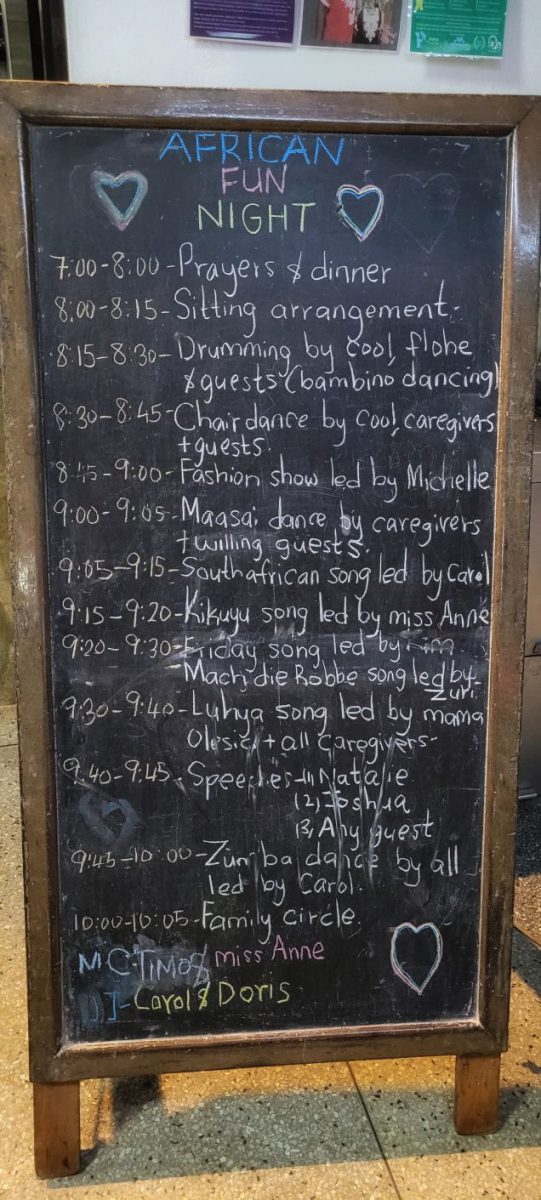 AFRICAN
FUN
NIGHT
7:00-8:00-Prayers & dinner
8:00-8:15-Sitting arrangement.
8:15-8:30-Drumming by cool, flohe
& guests (bambino dancing)
8:30-8:45-Chair dance by cool, caregivers
+guests.
8:45-9:00-Fashion show led by Michelle
9:00-9:05-Maasai dance by caregivers
+willing guests.
9:05-9:15-Southafrican song led by Carol
9:15-9:20-Kikuyu song led by miss Anne
9:20-9:30-Friday song led by
Mach die Robbe song led by
Zuri.
9:30-9:40-Luhya song led by mama
+ all caregivers-
9:40-9:45-Speeches-(1) Natalie
(2) Joshua
(3) Any guest
9:45-10:00-Zumba dance by all
led by Carol.
10:00-10:05-Family circle.
MC-TIMO & miss Anne
DJ-Carol & Doris